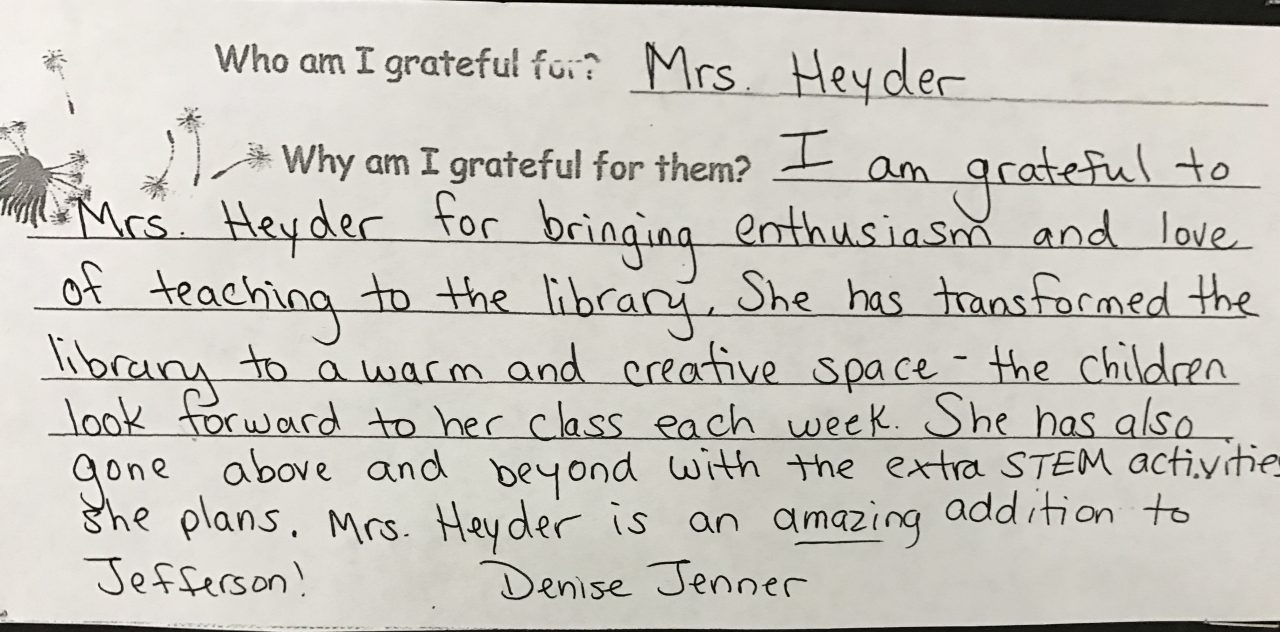 Who am I grateful for? Mrs. Heyder
Why am I grateful for them? I am grateful to
Mrs. Heyder for bringing enthusiasm and love
of teaching to the library. She has transformed the
library to a warm and creative space - the children
look forward to her class each week. She has also
gone above and beyond with the extra STEM activities
she plans. Mrs. Heyder is an amazing addition to
Jefferson! Denise Jenner